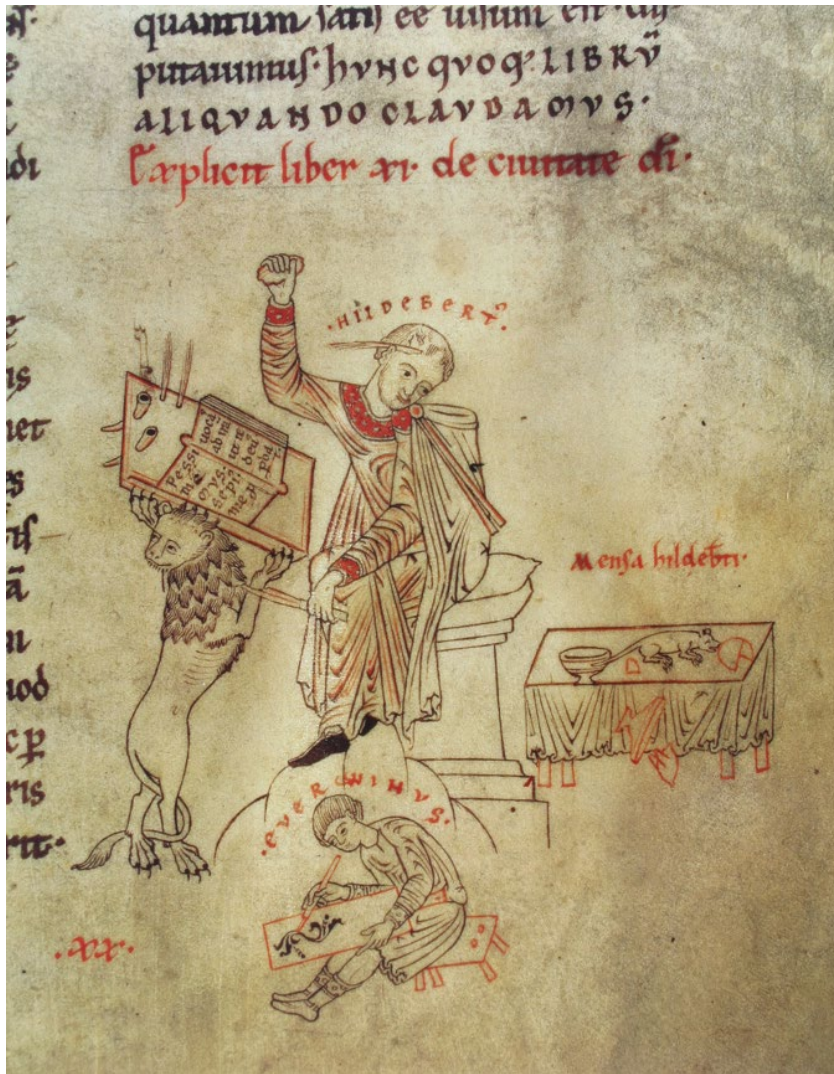 di
is
iet
es
ris
ã
uod
ris
rit·
quantum satis ee uisum est· dis
putauimus· hVNC QVOQ· LIBRV̄
ALIQVANDO CLAVDAMVS·
Explicit liber xi· de ciuitate dī·
·HILDEBERT⁹·
Pessi
me
mvs·
sepi⁹
me p
uoca
Mensa hildebti·
·EVERWINVS·
·xx·